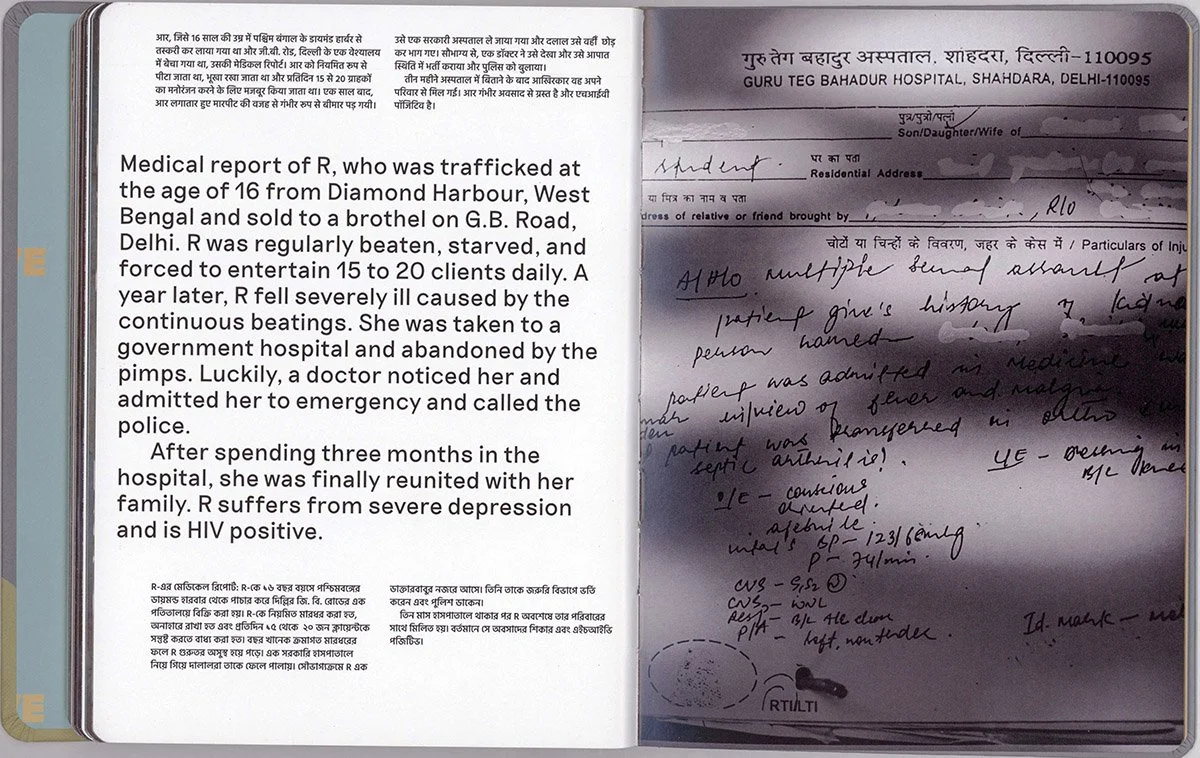 आर, जिसे 16 साल की उम्र में पश्चिम बंगाल के डायमंड हार्बर से
तस्करी कर लाया गया था और जी.बी. रोड, दिल्ली के एक वेश्यालय
में बेचा गया था, उसकी मेडिकल रिपोर्ट। आर को नियमित रूप से
पीटा जाता था, भूखा रखा जाता था और प्रतिदिन 15 से 20 ग्राहकों
का मनोरंजन करने के लिए मजबूर किया जाता था। एक साल बाद,
आर लगातार हुए मारपीट की वजह से गंभीर रूप से बीमार पड़ गयी।
उसे एक सरकारी अस्पताल ले जाया गया और दलाल उसे वहीं छोड़
कर भाग गए। सौभाग्य से, एक डॉक्टर ने उसे देखा और उसे आपात
स्थिति में भर्ती कराया और पुलिस को बुलाया।
तीन महीने अस्पताल में बिताने के बाद आखिरकार वह अपने
परिवार से मिल गई। आर गंभीर अवसाद से ग्रस्त है और एचआईवी
पॉजिटिव है।
Medical report of R, who was trafficked at
the age of 16 from Diamond Harbour, West
Bengal and sold to a brothel on G.B. Road,
Delhi. R was regularly beaten, starved, and
forced to entertain 15 to 20 clients daily. A
year later, R fell severely ill caused by the
continuous beatings. She was taken to a
government hospital and abandoned by the
pimps. Luckily, a doctor noticed her and
admitted her to emergency and called the
police.
After spending three months in the
hospital, she was finally reunited with her
family. R suffers from severe depression
and is HIV positive.
R-এর মেডিকেল রিপোর্ট: R-কে ১৬ বছর বয়সে পশ্চিমবঙ্গের
ডায়মন্ড হারবার থেকে পাচার করে দিল্লির জি. বি. রোডের এক
পতিতালয়ে বিক্রি করা হয়। R-কে নিয়মিত মারধর করা হত,
অনাহারে রাখা হত এবং প্রতিদিন ১৫ থেকে ২০ জন ক্লায়েন্টকে
সন্তুষ্ট করতে বাধ্য করা হত। বছর খানেক ক্রমাগত মারধরের
ফলে R গুরুতর অসুস্থ হয়ে পড়ে। এক সরকারি হাসপাতালে
নিয়ে গিয়ে দালালরা তাকে ফেলে পালায়। সৌভাগ্যক্রমে R এক
ডাক্তারবাবুর নজরে আসে। তিনি তাকে জরুরি বিভাগে ভর্তি
করেন এবং পুলিশ ডাকেন।
তিন মাস হাসপাতালে থাকার পর R অবশেষে তার পরিবারের
সাথে মিলিত হয়। বর্তমানে সে অবসাদের শিকার এবং এইচআইভি
পজিটিভ।
गुरु तेग बहादुर अस्पताल, शाहदरा, दिल्ली-110095
GURU TEG BAHADUR HOSPITAL, SHAHDARA, DELHI-110095
पुत्र/पुत्री/पत्नी
Son/Daughter/Wife of
student. घर का पता
Residential Address
या मित्र का नाम व पता
dress of relative or friend brought by R/O
चोटों या चिन्हों के विवरण, जहर के केस में / Particulars of Inju
A/H/O multiple sexual assault at
patient give's history of kidna
person named
patient was admitted in Medicine
in/view of fever and
patient was transferred in ortho
septic arthritis!.
L/E - Dressing in
B/L knee
O/E - conscious
oriented.
afebrile.
vital's BP - 123/68mmHg
P - 74/min.
CVS - S1S2
CNS - WNL
Resp - B/L AE clear
P/A - soft, non tender.
RTI/LTI